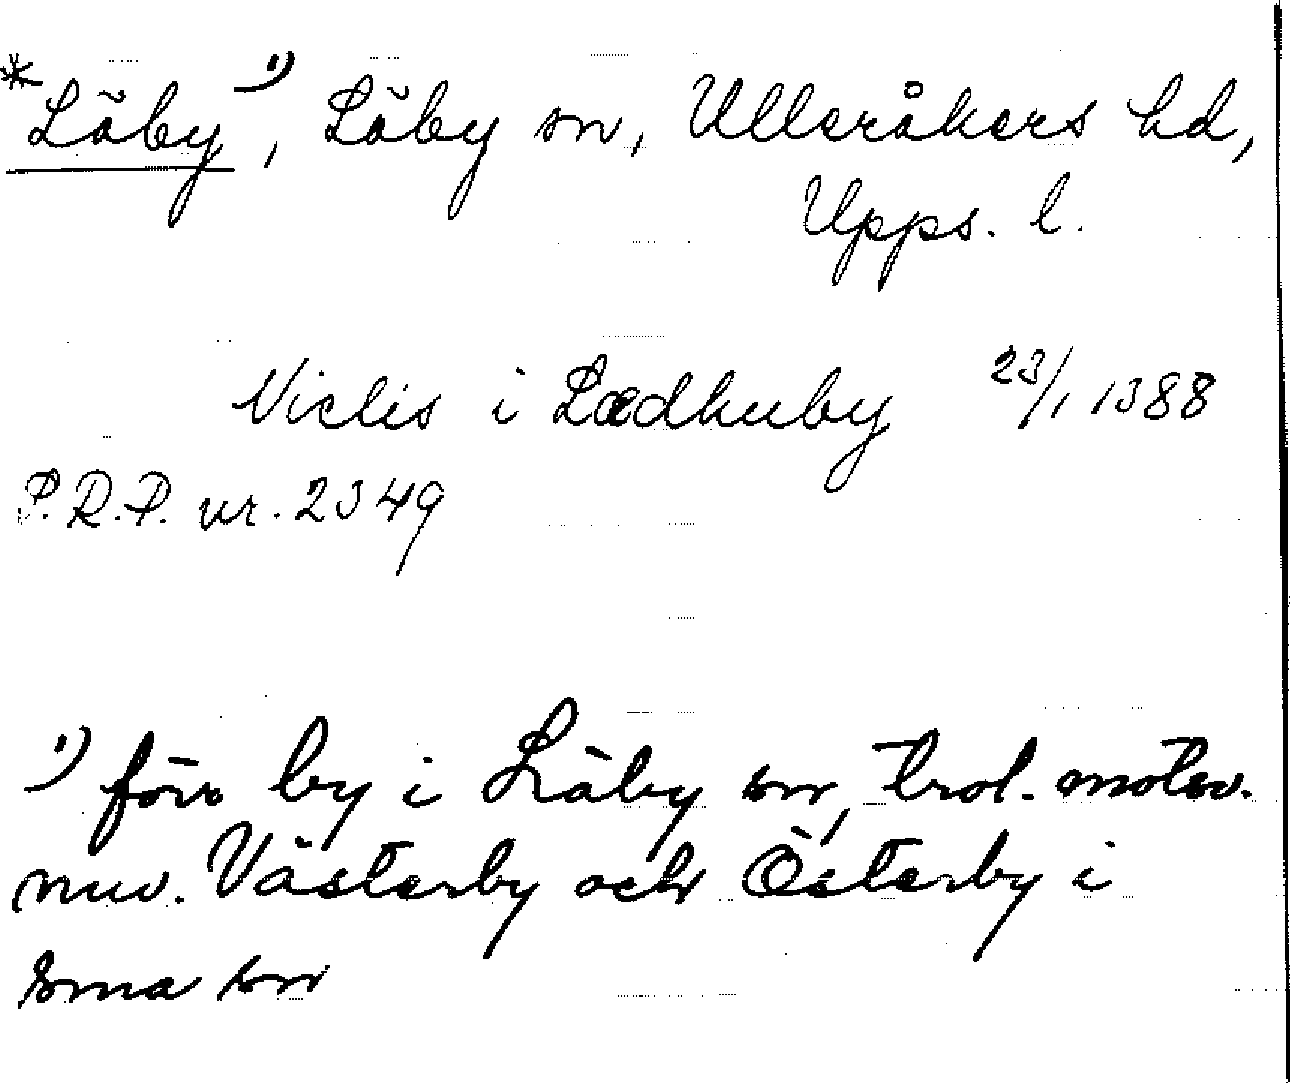 *Läby¹⁾, Läby sn, Ulleråkers hd,
Upps. l.
Niclis i Lædhuby 23/1 1388
P.R.P. nr. 2349
¹⁾ förr by i Läby sn, trol. motsv.
nuv. Västerby och Österby i
sma sn